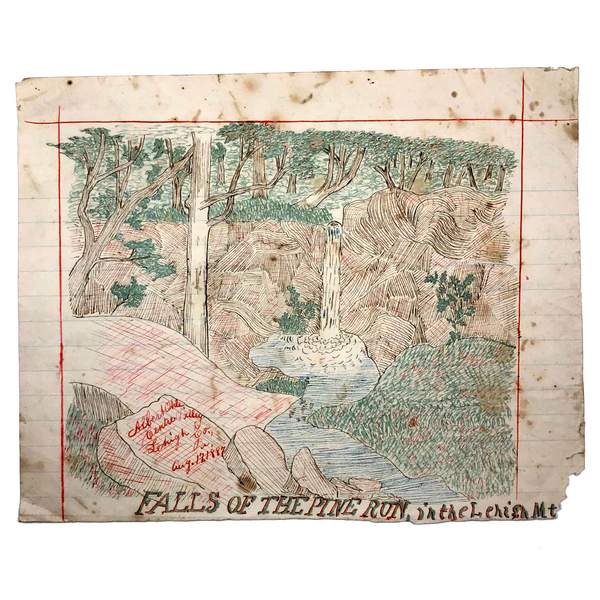 Albert
Centre Valley
Lehigh Co.,
Pa
Aug. 12 1887
FALLS OF THE PINE RUN, in the Lehigh Mt